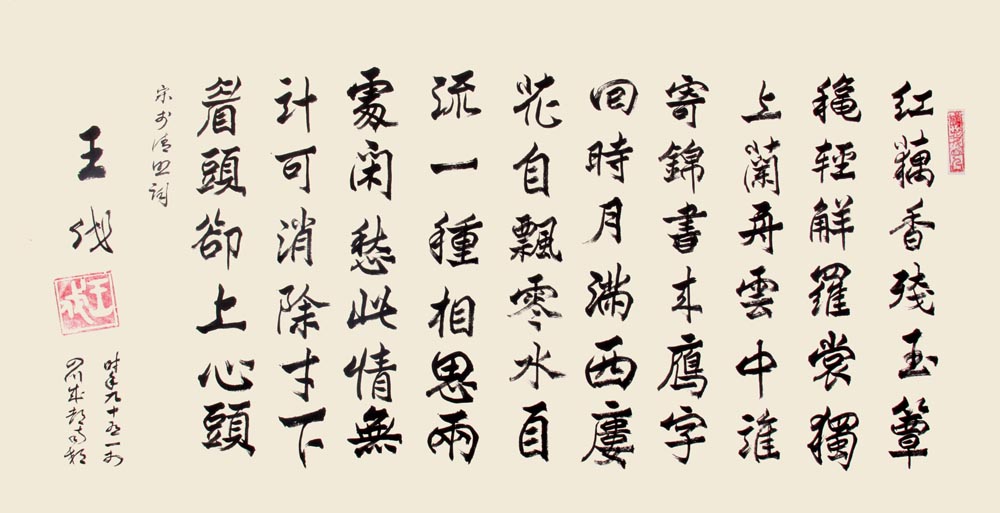 红藕香殘玉簟
穐輕解羅裳獨
上蘭舟雲中誰
寄錦書来鴈字
回時月滿西廔
花自飄零水自
流一種相思兩
處闲愁此情無
計可消除才下
眉頭卻上心頭
宋李清照詞
王
時年九十五
四川成都南郊